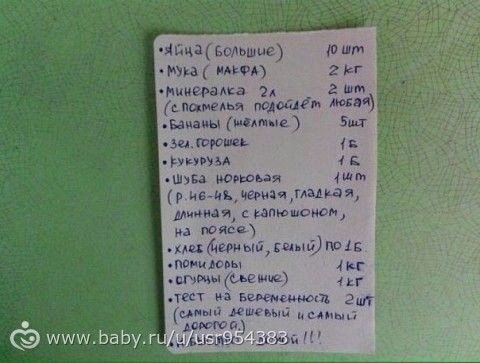 • Яйца (большие) 10 шт
• Мука (Макфа) 2 кг
• Минералка 2л 2 шт
(с похмелья подойдёт любая)
• Бананы (жёлтые) 5шт
• Зел. горошек 1 Б
• Кукуруза 1 Б
• Шуба норковая 1шт
(р.46-48, чёрная, гладкая,
длинная, с капюшоном,
на поясе)
• Хлеб (чёрный, белый) по 1Б.
• Помидоры 1 кг
• Огурцы (свежие) 1 кг
• Тест на беременность 2шт
(самый дешёвый и самый
дорогой)
!!!
www.baby.ru/u/usr954383